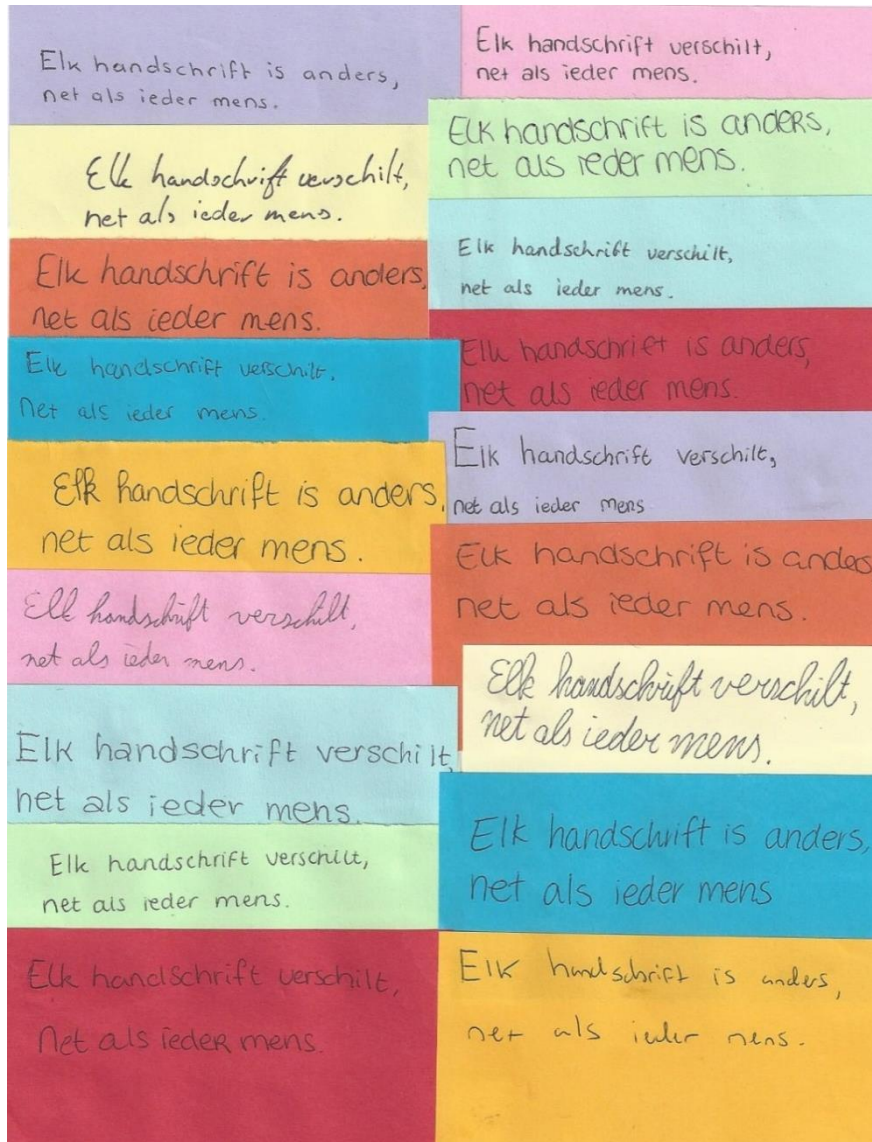 Elk handschrift is anders,
net als ieder mens.
Elk handschrift verschilt,
net als ieder mens.
Elk handschrift is anders,
net als ieder mens.
Elk handschrift verschilt,
net als ieder mens.
Elk handschrift is anders,
net als ieder mens.
Elk handschrift verschilt,
net als ieder mens.
Elk handschrift verschilt,
net als ieder mens.
Elk handschrift verschilt,
net als ieder mens.
Elk handschrift verschilt,
Net als ieder mens.
Elk handschrift verschilt,
net als ieder mens.
Elk handschrift is anders,
net als ieder mens.
Elk handschrift verschilt,
net als ieder mens.
Elk handschrift is anders,
net als ieder mens.
Elk handschrift verschilt,
net als ieder mens
Elk handschrift is anders
net als ieder mens.
Elk handschrift verschilt,
net als ieder mens.
Elk handschrift is anders,
net als ieder mens
Elk handschrift is anders,
net als ieder mens.